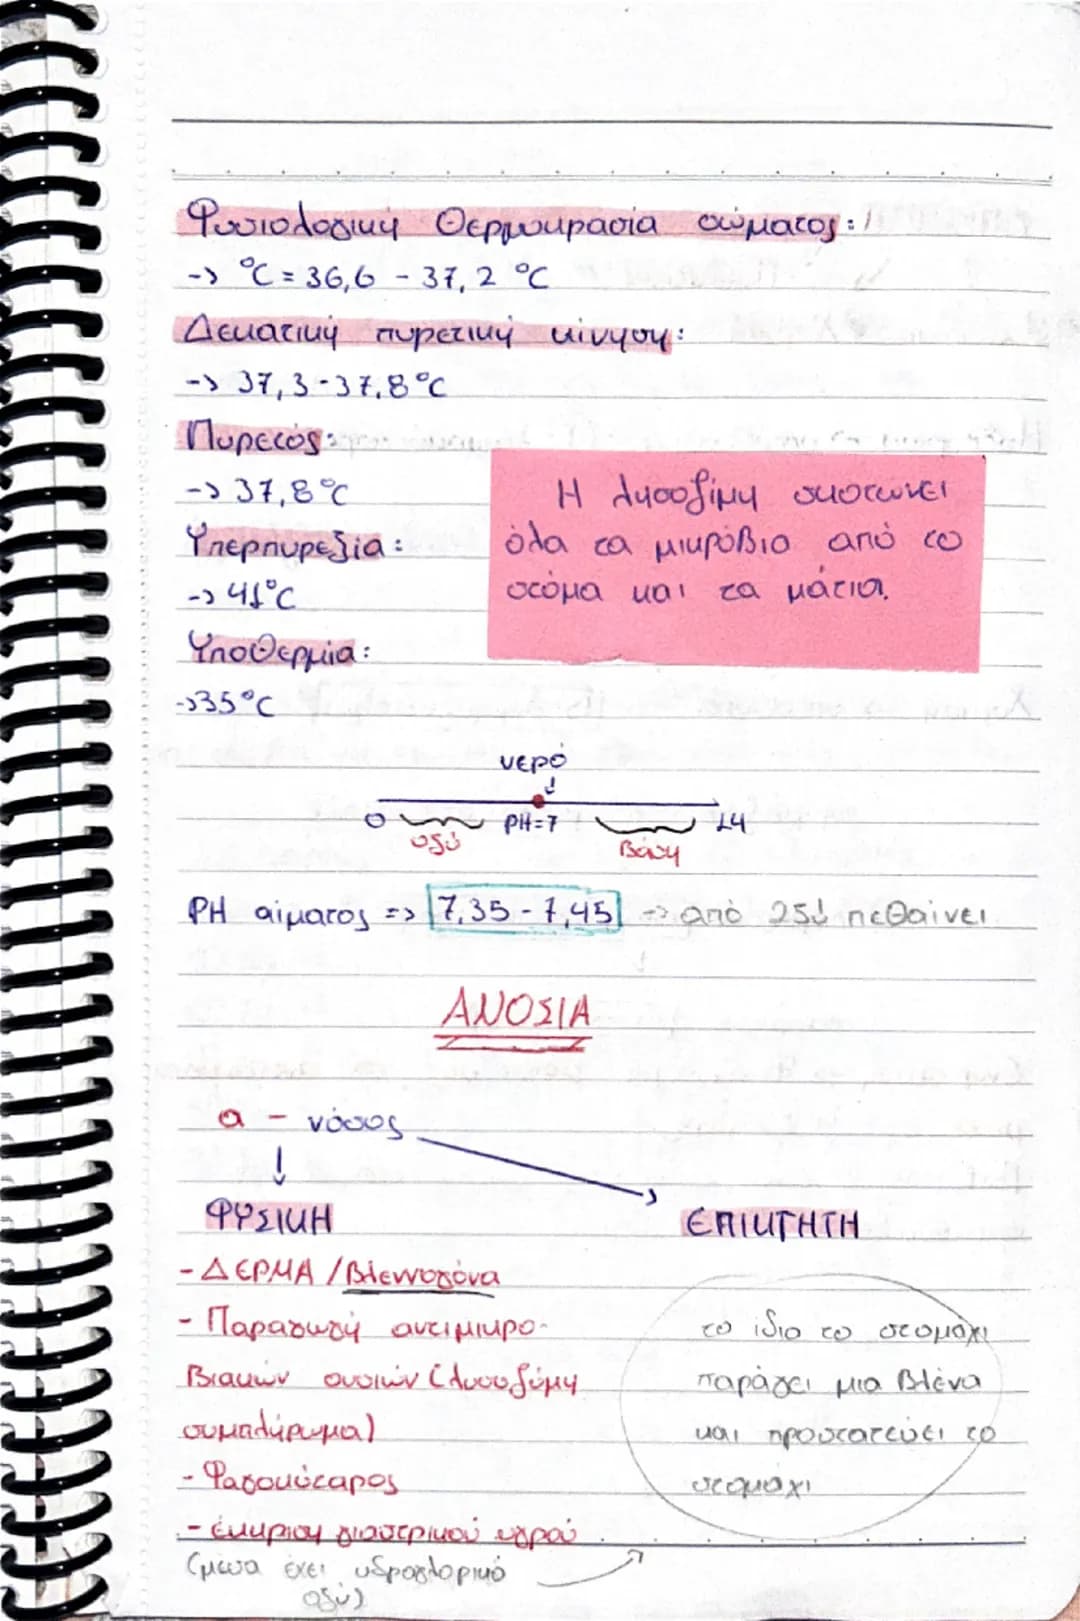 Φυσιολογική Θερμοκρασία σώματος:
-> °C = 36,6 - 37,2 °C
Δεκατική πυρετική κίνηση:
-> 37,3-37,8°C
Πυρετός:
-> 37,8°C
Υπερπυρεξία:
-> 41°C
Υποθερμία:
->35°C
Η λησοζίμη σκοτώνει
όλα τα μικρόβια από το
στόμα και τα μάτια.
νερό
0 PH=7 14
οξύ βάση
PH αίματος => 7,35 - 7,45 => από 25↓ πεθαίνει
ΑΝΟΣΙΑ
α - νόσος
ΦΥΣΙΚΗ ΕΠΙΚΤΗΤΗ
- ΔΕΡΜΑ / Βλεννογόνα
- Παραγωγή αντιμικρο-
βιακών ουσιών (λυσοζύμη
συμπλήρωμα)
- Φαγοκύταρος
- έκκριση γιαστρικού υγρού
(μεσα έχει υδροχλορικό
οξύ)
το ίδιο το στομάχι
παράγει μια βλένα
και προστατεύει το
στομάχι